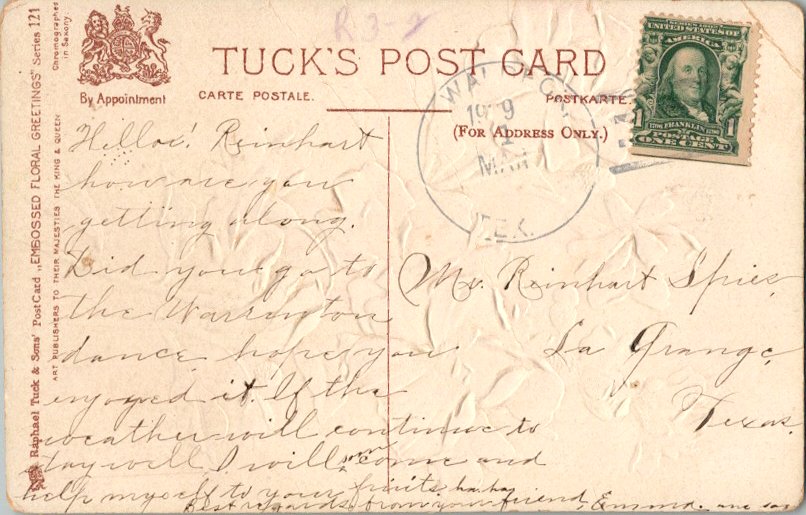 R3-2
TUCK'S POST CARD
By Appointment
CARTE POSTALE.
POSTKARTE.
(FOR ADDRESS ONLY.)
UNITED STATES OF
AMERICA
FRANKLIN
1 1
POSTAGE
ONE CENT
1909
MAY
TEX.
Raphael Tuck & Sons' Post Card „EMBOSSED FLORAL GREETINGS" Series 121
ART PUBLISHERS TO THEIR MAJESTIES THE KING & QUEEN
Chromographed
in Saxony.
Helloo! Reinhart
how are you
getting along.
Did you go to
the Warrenton
dance hope you
enjoyed it. If the
weather will continue to
stay well I will soon come and
help myself to your fruits ha ha
Best regards from your friend, Emma.
Mr. Reinhart Spies,
La Grange,
Texas.